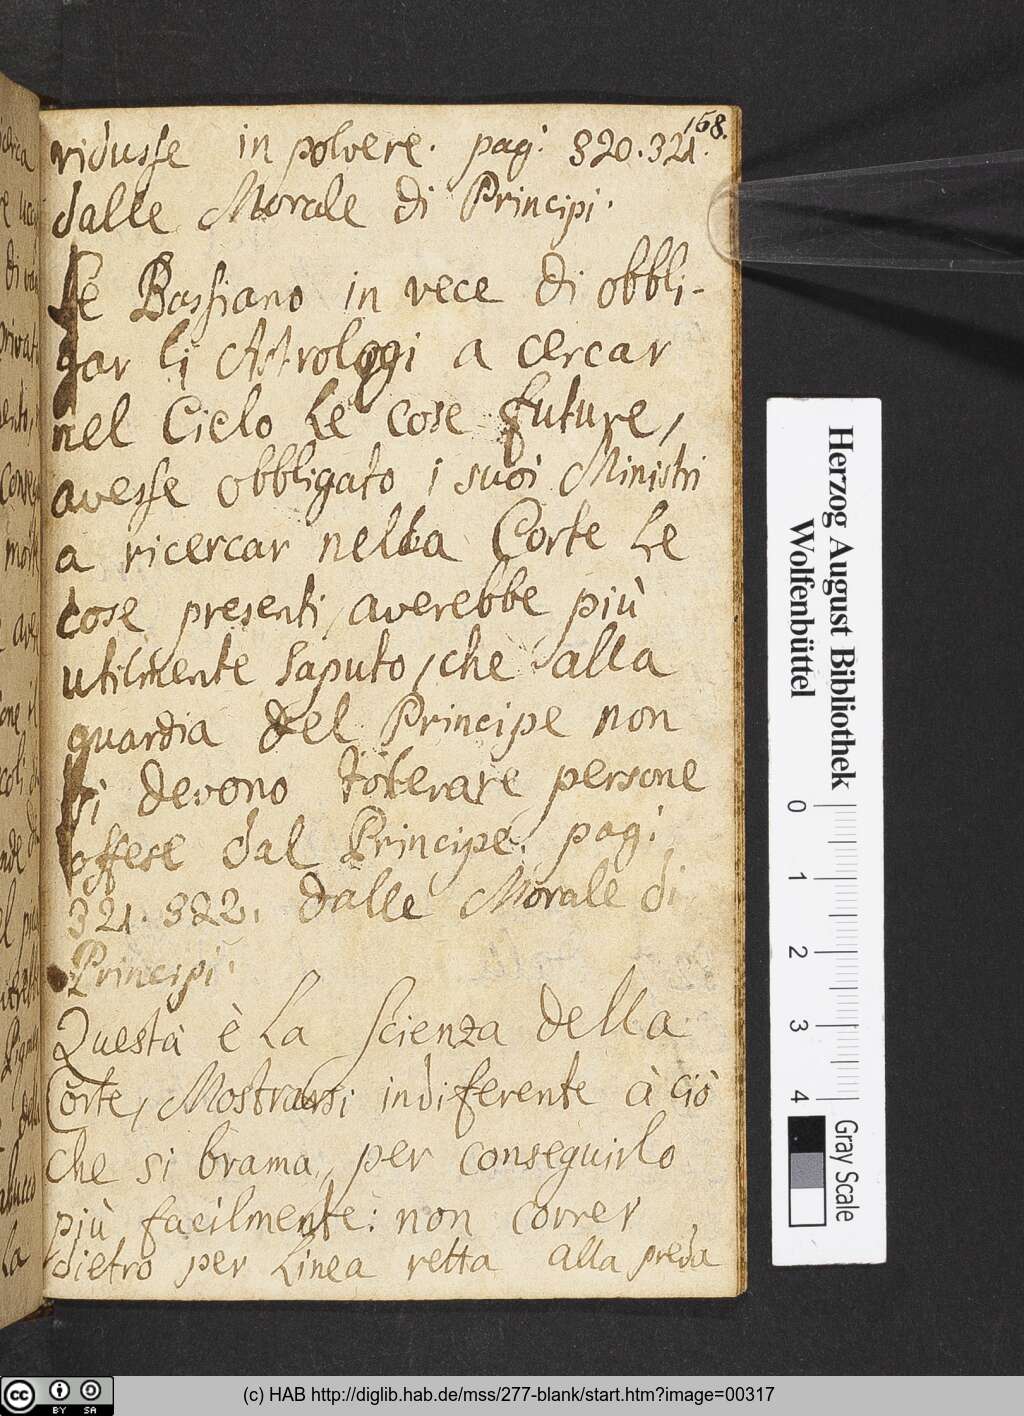 158.
ridusse in polvere. pag: 320. 321.
dalle Morale di Principi.
Se Bassiano in vece di obbli-
gar li Astrologi a cercar
nel Cielo le cose future,
avesse obbligato i suoi Ministri
a ricercar nella Corte le
cose presenti, averebbe più
utilmente saputo, che alla
guardia del Principe non
si devono tolerare persone
offese dal Principe. pag:
321. 322. dalle Morale di
Principi.
Questa è la Scienza della
Corte, Mostrarsi indiferente à ciò
che si brama, per conseguirlo
più facilmente: non correr
dietro per linea retta alla preda
Herzog August Bibliothek
Wolfenbüttel
0 1 2 3 4
Gray Scale
cc BY SA
(c) HAB http://diglib.hab.de/mss/277-blank/start.htm?image=00317